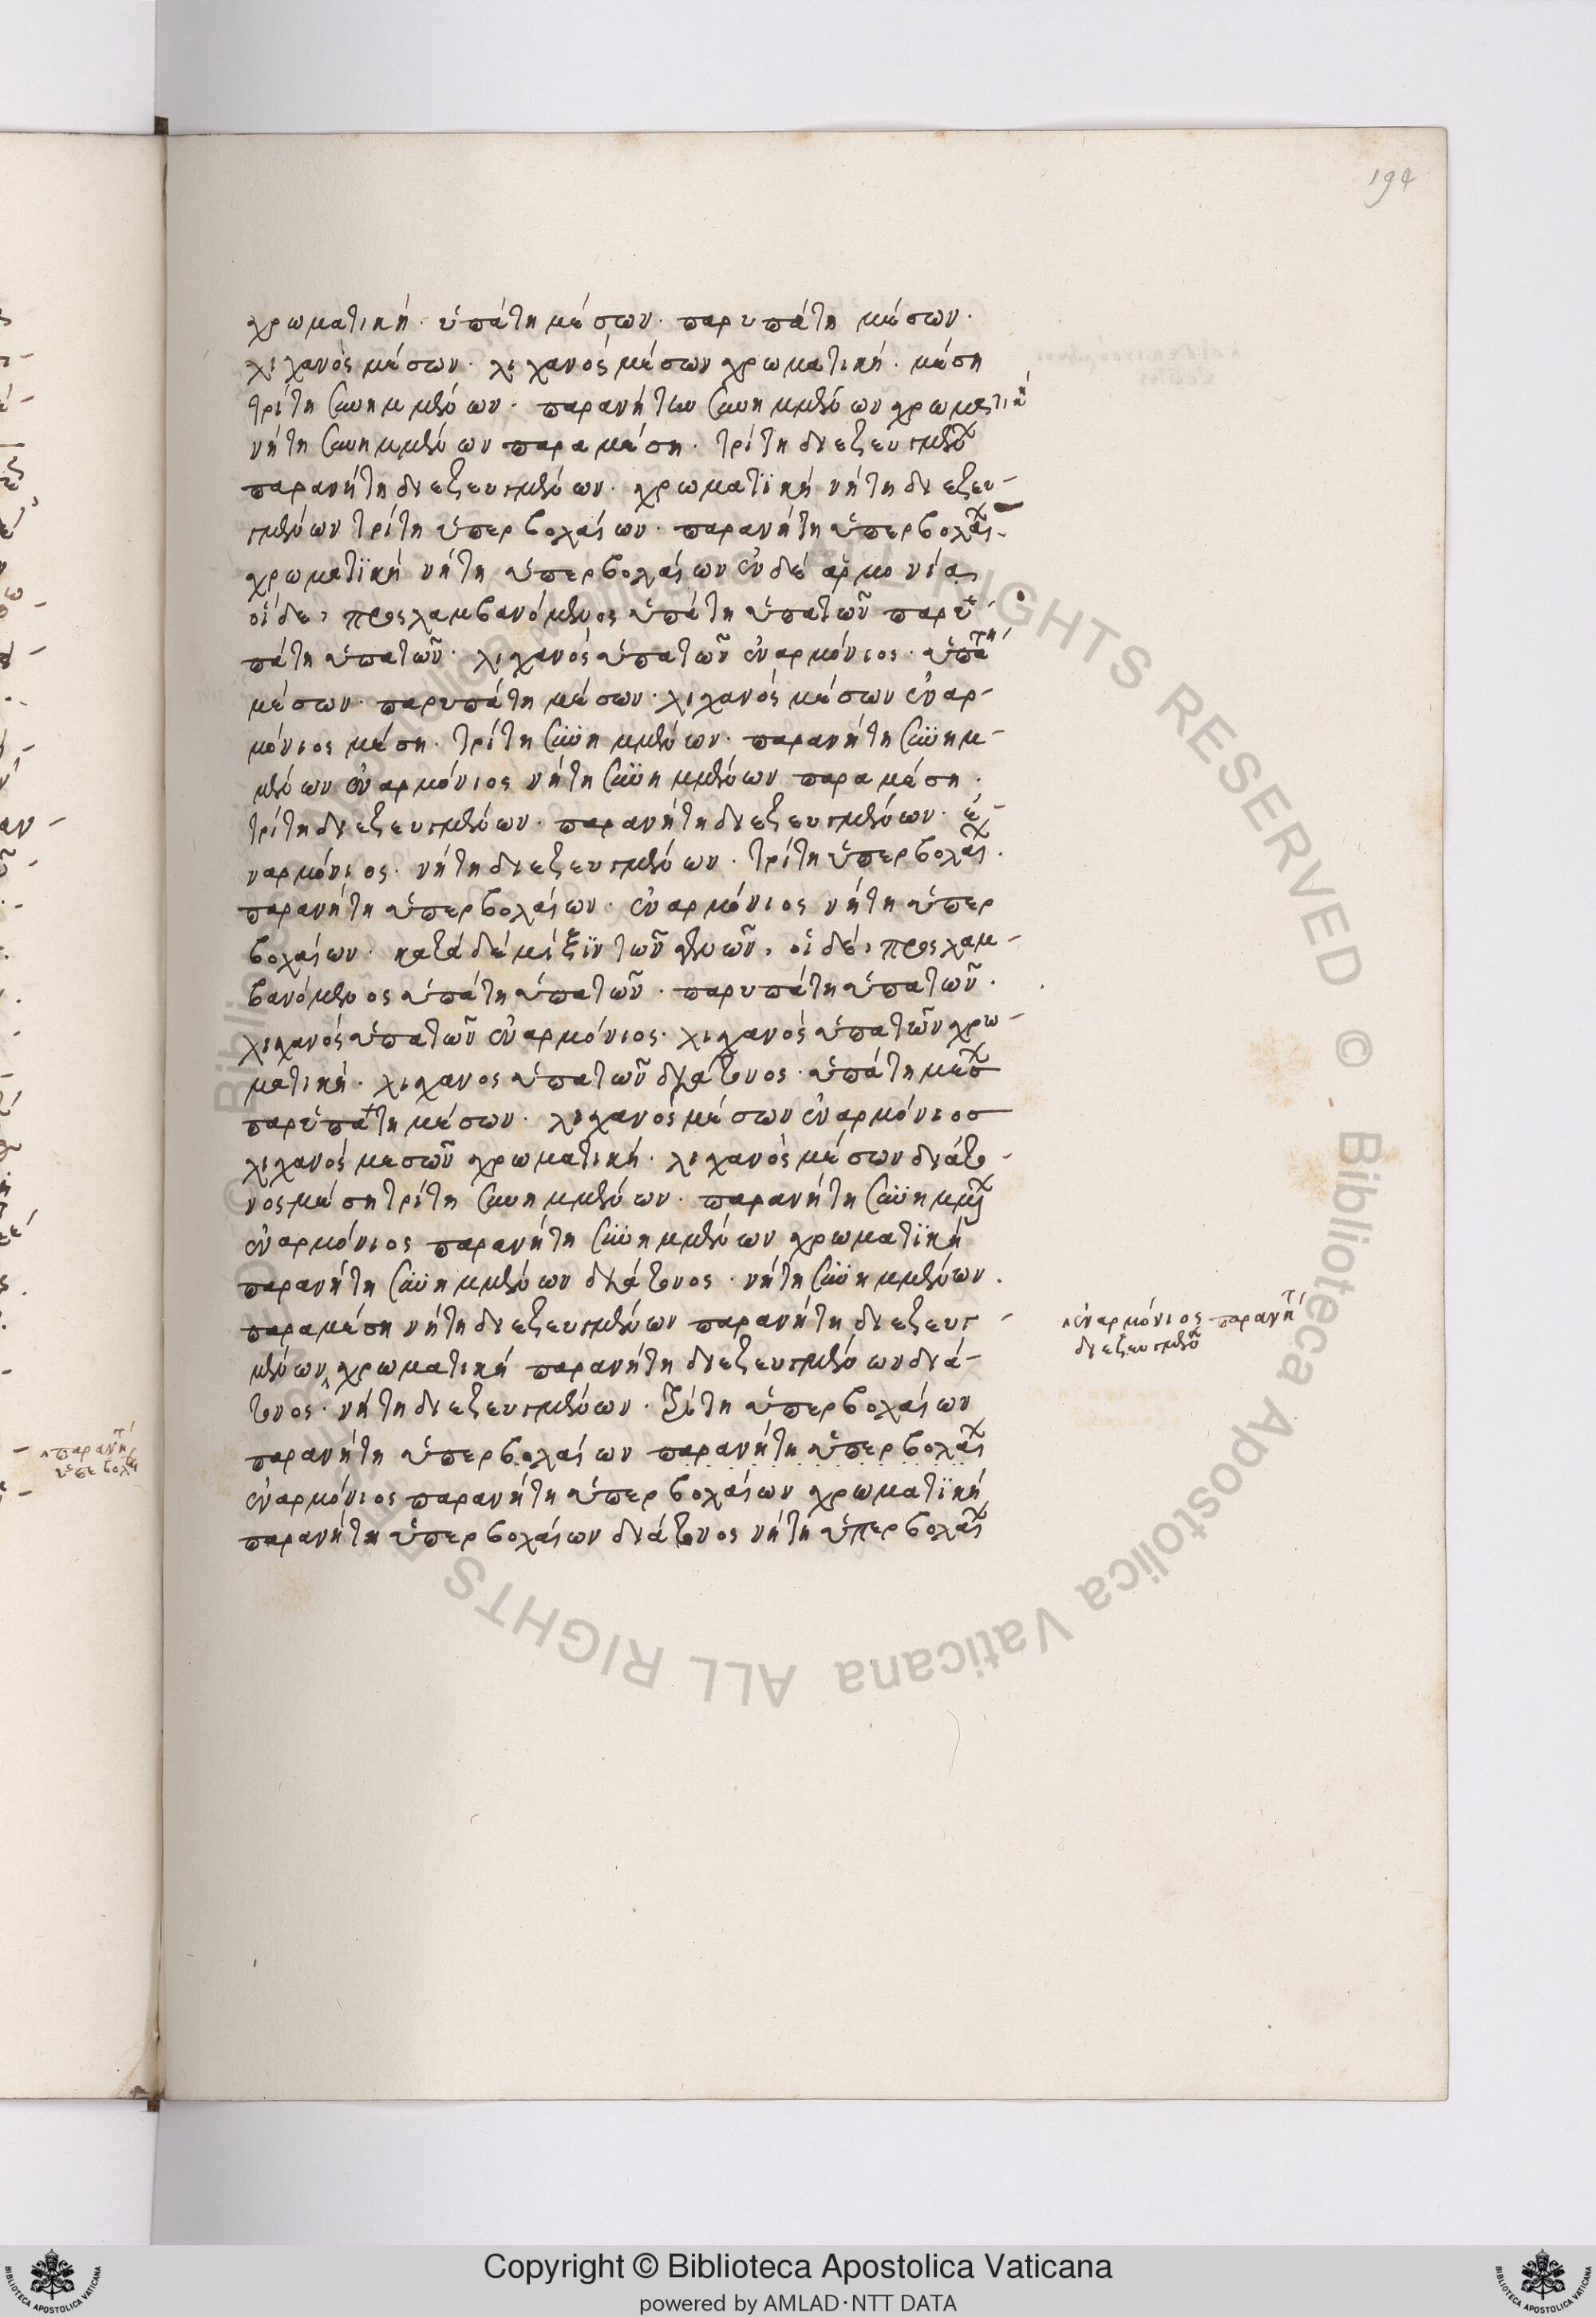 194
χρωματικὴ· ὑπάτη μέσων· παρυπάτη μέσων·
λιχανὸς μέσων· λιχανὸς μέσων χρωματικὴ· μέση
τρίτη συνημμένων· παρανήτων συνημμένων χρωματικὴ
νήτη συνημμένων παραμέση· τρίτη διεζευγμένων
παρανήτη διεζευγμένων· χρωματϊκὴ νήτη διεζευ-
γμένων τρίτη ὑπερβολαίων· παρανήτη ὑπερβολαίων
χρωματϊκὴ νήτη ὑπερβολαίων ἐν δὲ ἁρμονίας
οἵδε, προςλαμβανόμενος ὑπάτη ὑπατῶν παρυ-
πάτη ὑπατῶν· λιχανὸς ὑπατῶν ἐναρμόνιος· ὑπάτη
μέσων· παρυπάτη μέσων· λιχανὸς μέσων ἐναρ-
μόνιος μέση· τρίτη συνημμένων· παρανήτη συνημ-
μένων ἐναρμόνιος νήτη συνημμένων παραμέση·
τρίτη διεζευγμένων· παρανήτη διεζευγμένων· ἐ-
ναρμόνιος· νήτη διεζευγμένων· τρίτη ὑπερβολαίων·
παρανήτη ὑπερβολαίων· ἐναρμόνιος νήτη ὑπερ
βολαίων· κατὰ δὲ μίξϊν τῶν γενῶν, οἱ δὲ, προςλαμ-
βανόμενος ὑπάτη ὑπατῶν· παρυπάτη ὑπατῶν·
λιχανὸς ὑπατῶν ἐναρμόνιος· λιχανὸς ὑπατῶν χρω-
ματικὴ· λιχανος ὑπατῶν διάτονος· ὑπάτη μέσων
παρυπάτη μέσων· λιχανὸς μέσων ἐναρμόνιος
λιχανὸς μεσῶν χρωματικὴ· λιχανὸς μέσων διάτο-
νος μέση τρίτη συνημμένων· παρανήτη συνημμένων
ἐναρμόνιος παρανήτη συνημμένων χρωματϊκὴ
παρανήτη συνημμένων διάτονος· νήτη συνημμένων·
παραμέση νήτη διεζευγμένων παρανήτη διεζευγ-
μένων ‸ χρωματικὴ παρανήτη διεζευγμένων διά-
τονος· νήτη διεζευγμένων· τρίτη ὑπερβολαίων
παρανήτη ὑπερβολαίων παρανήτη ὑπερβολαίων
ἐναρμόνιος παρανήτη ὑπερβολαίων χρωματϊκὴ
παρανήτη ὑπερβολαίων διάτονος νήτη ὑπερβολαίων
‸ ἐναρμόνιος παρανήτη
διεζευγμένων
‸ παρανήτη
ὑπερβολαίων
© Biblioteca Apostolica Vaticana ALL RIGHTS RESERVED
Copyright © Biblioteca Apostolica Vaticana
powered by AMLAD·NTT DATA
BIBLIOTECA APOSTOLICA VATICANA
BIBLIOTECA APOSTOLICA VATICANA